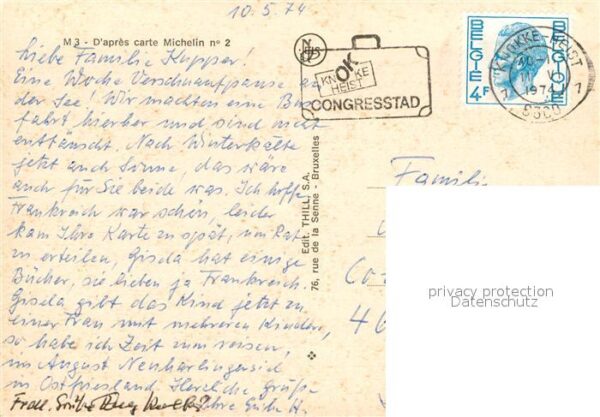 10.5.74
M 3 - D'après carte Michelin n° 2
Liebe Familie Küpper!
Eine Woche Verschnaufpause an
der See! Wir machten eine Bus
fahrt hierher und sind nicht
enttäuscht. Nach Winterkälte
jetzt auch Sonne, das wäre
auch für Sie beide was. Ich hoffe,
Frankreich war schön, leider
kam Ihre Karte zu spät, um Rat
zu erteilen, Gisela hat einige
Bücher, sie lieben ja Frankreich.
Gisela gibt das Kind jetzt zu
einer Frau mit mehreren Kindern,
so habe ich Zeit zum reisen,
im August Neuharlingersiel
in Ostfriesland. Herzliche Grüße
Ihre
Frdl. Grüße
Edit. THILL, S.A.
76, rue de la Senne - Bruxelles
OK
KNOKKE
HEIST
CONGRESSTAD
BELGIE 4F
BELGIQUE
KNOKKE-HEIST
1974
Familie
privacy protection
Datenschutz